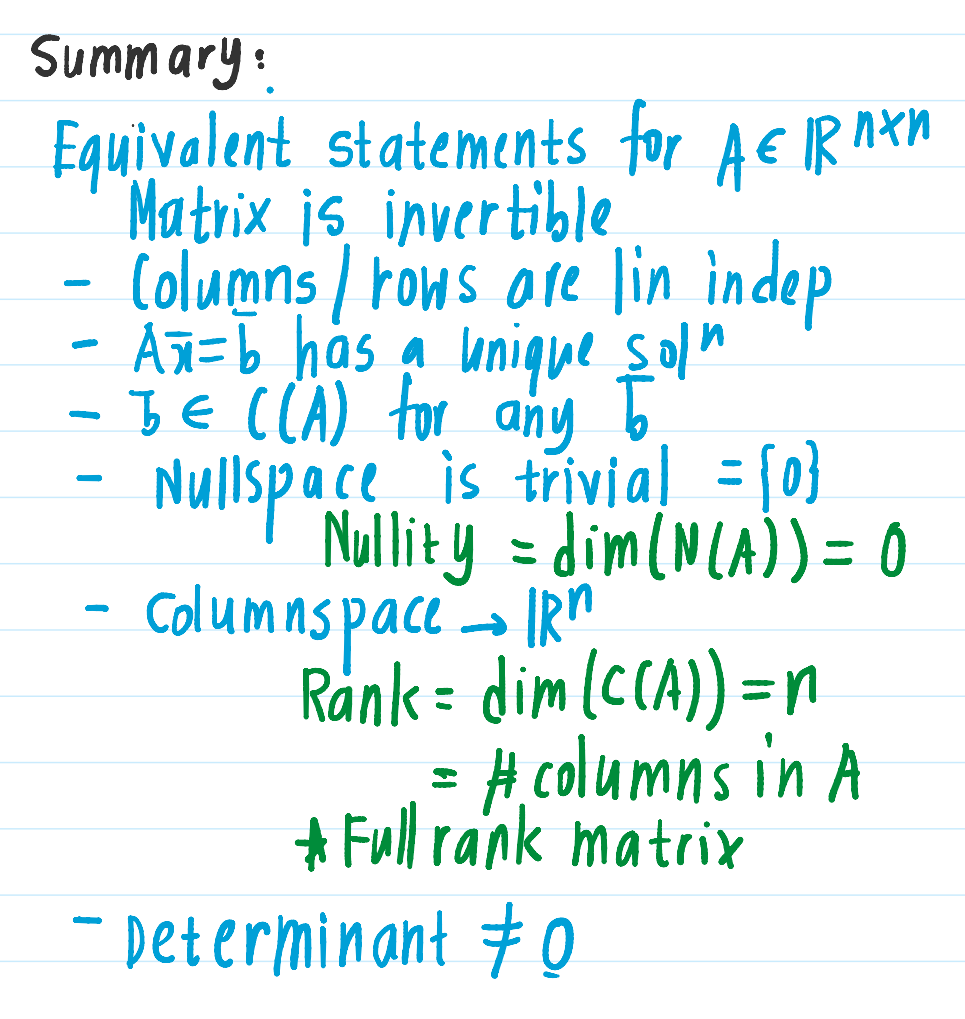 Summary:
Equivalent statements for A ∈ ℝⁿˣⁿ
Matrix is invertible
- Columns / rows are lin indep
- Ax̄ = b̄ has a unique solⁿ
- b̄ ∈ C(A) for any b̄
- Nullspace is trivial = {0}
Nullity = dim(N(A)) = 0
- Columnspace → ℝⁿ
Rank = dim(C(A)) = n
= # columns in A
* Full rank matrix
- Determinant ≠ 0